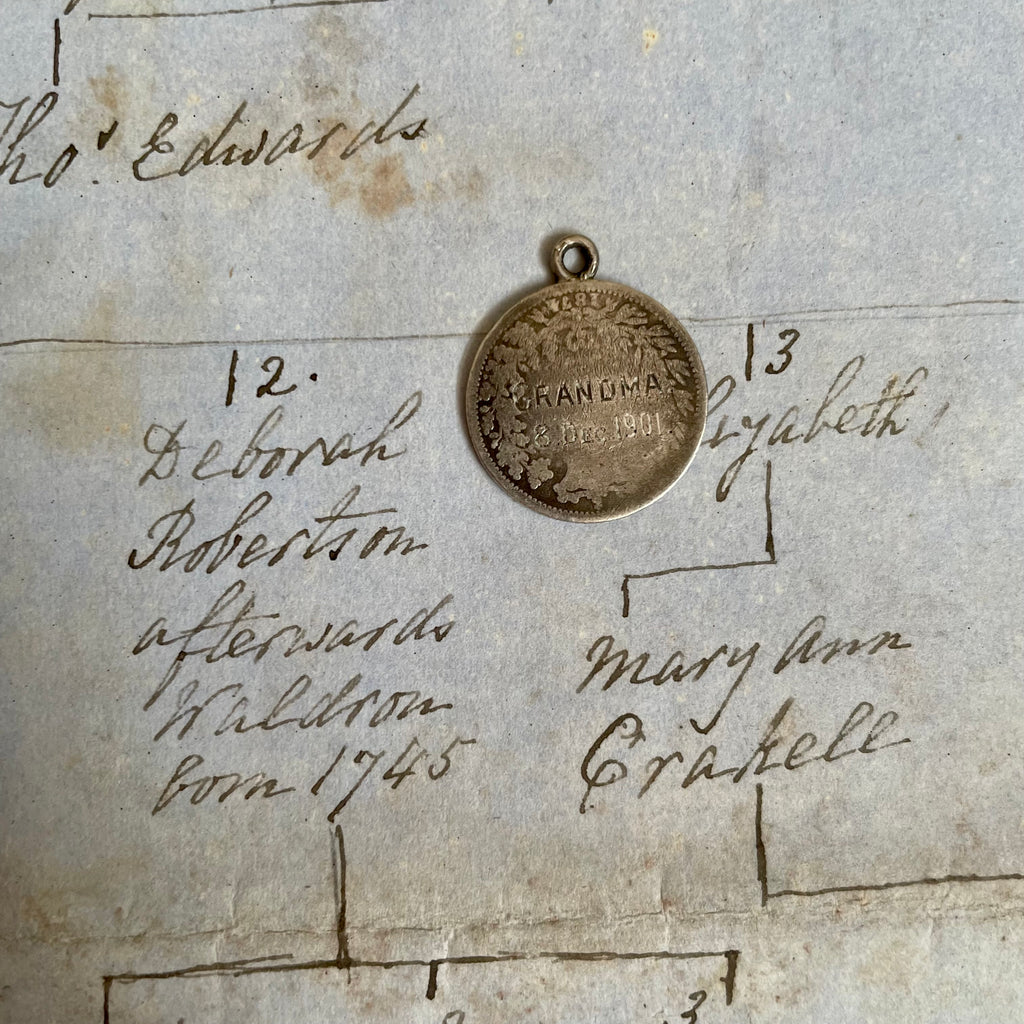 Thos. Edwards
12.
Deborah
Robertson
afterwards
Waldrom
born 1745
GRANDMA
8 DEC 1901
13
Elizabeth
Mary Ann
Crakell
3